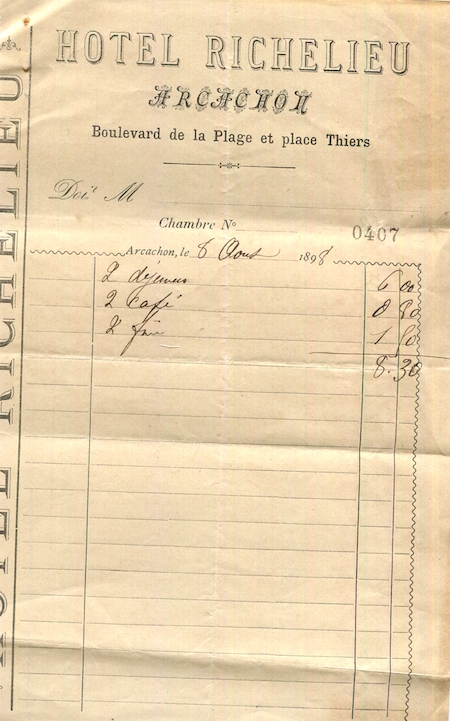 HOTEL RICHELIEU
HOTEL RICHELIEU
ARCACHON
Boulevard de la Plage et place Thiers
Doit M
Chambre Nº
0407
Arcachon, le 6 Aout 1898
2 déjeuners 6 00
2 café 0 80
2 fine 1 50
8.30